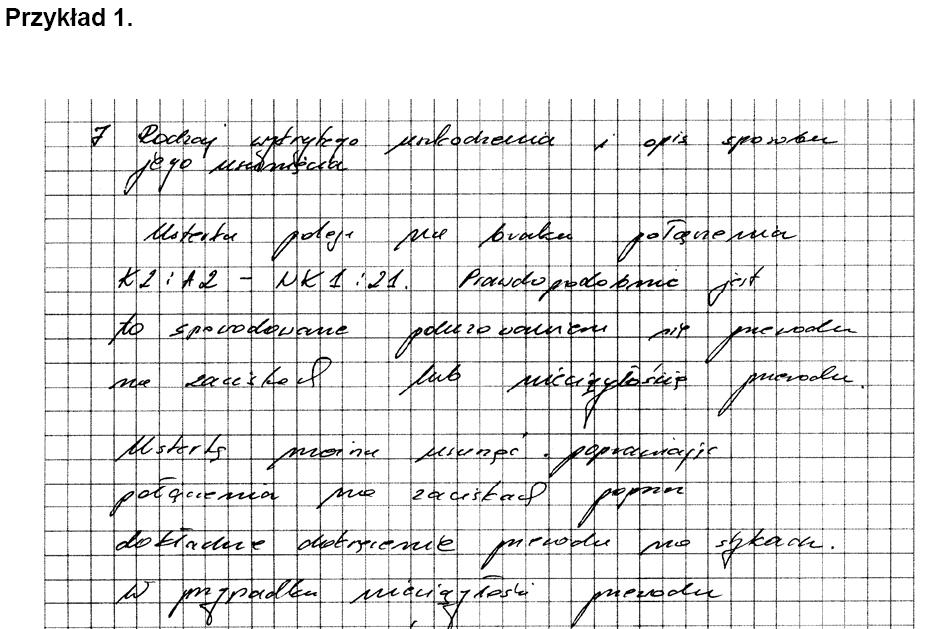 Przykład 1.
7 Rodzaj wykrytego uszkodzenia i opis sposobu
jego usunięcia
Usterka polega na braku połączenia
K2:A2 - NK1:21. Prawdopodobnie jest
to spowodowane poluzowaniem się przewodu
na zaciskach lub nieciągłością przewodu.
Usterkę można usunąć poprawiając
połączenia na zaciskach poprzez
dokładne dokręcenie przewodu na stykach.
W przypadku nieciągłości przewodu